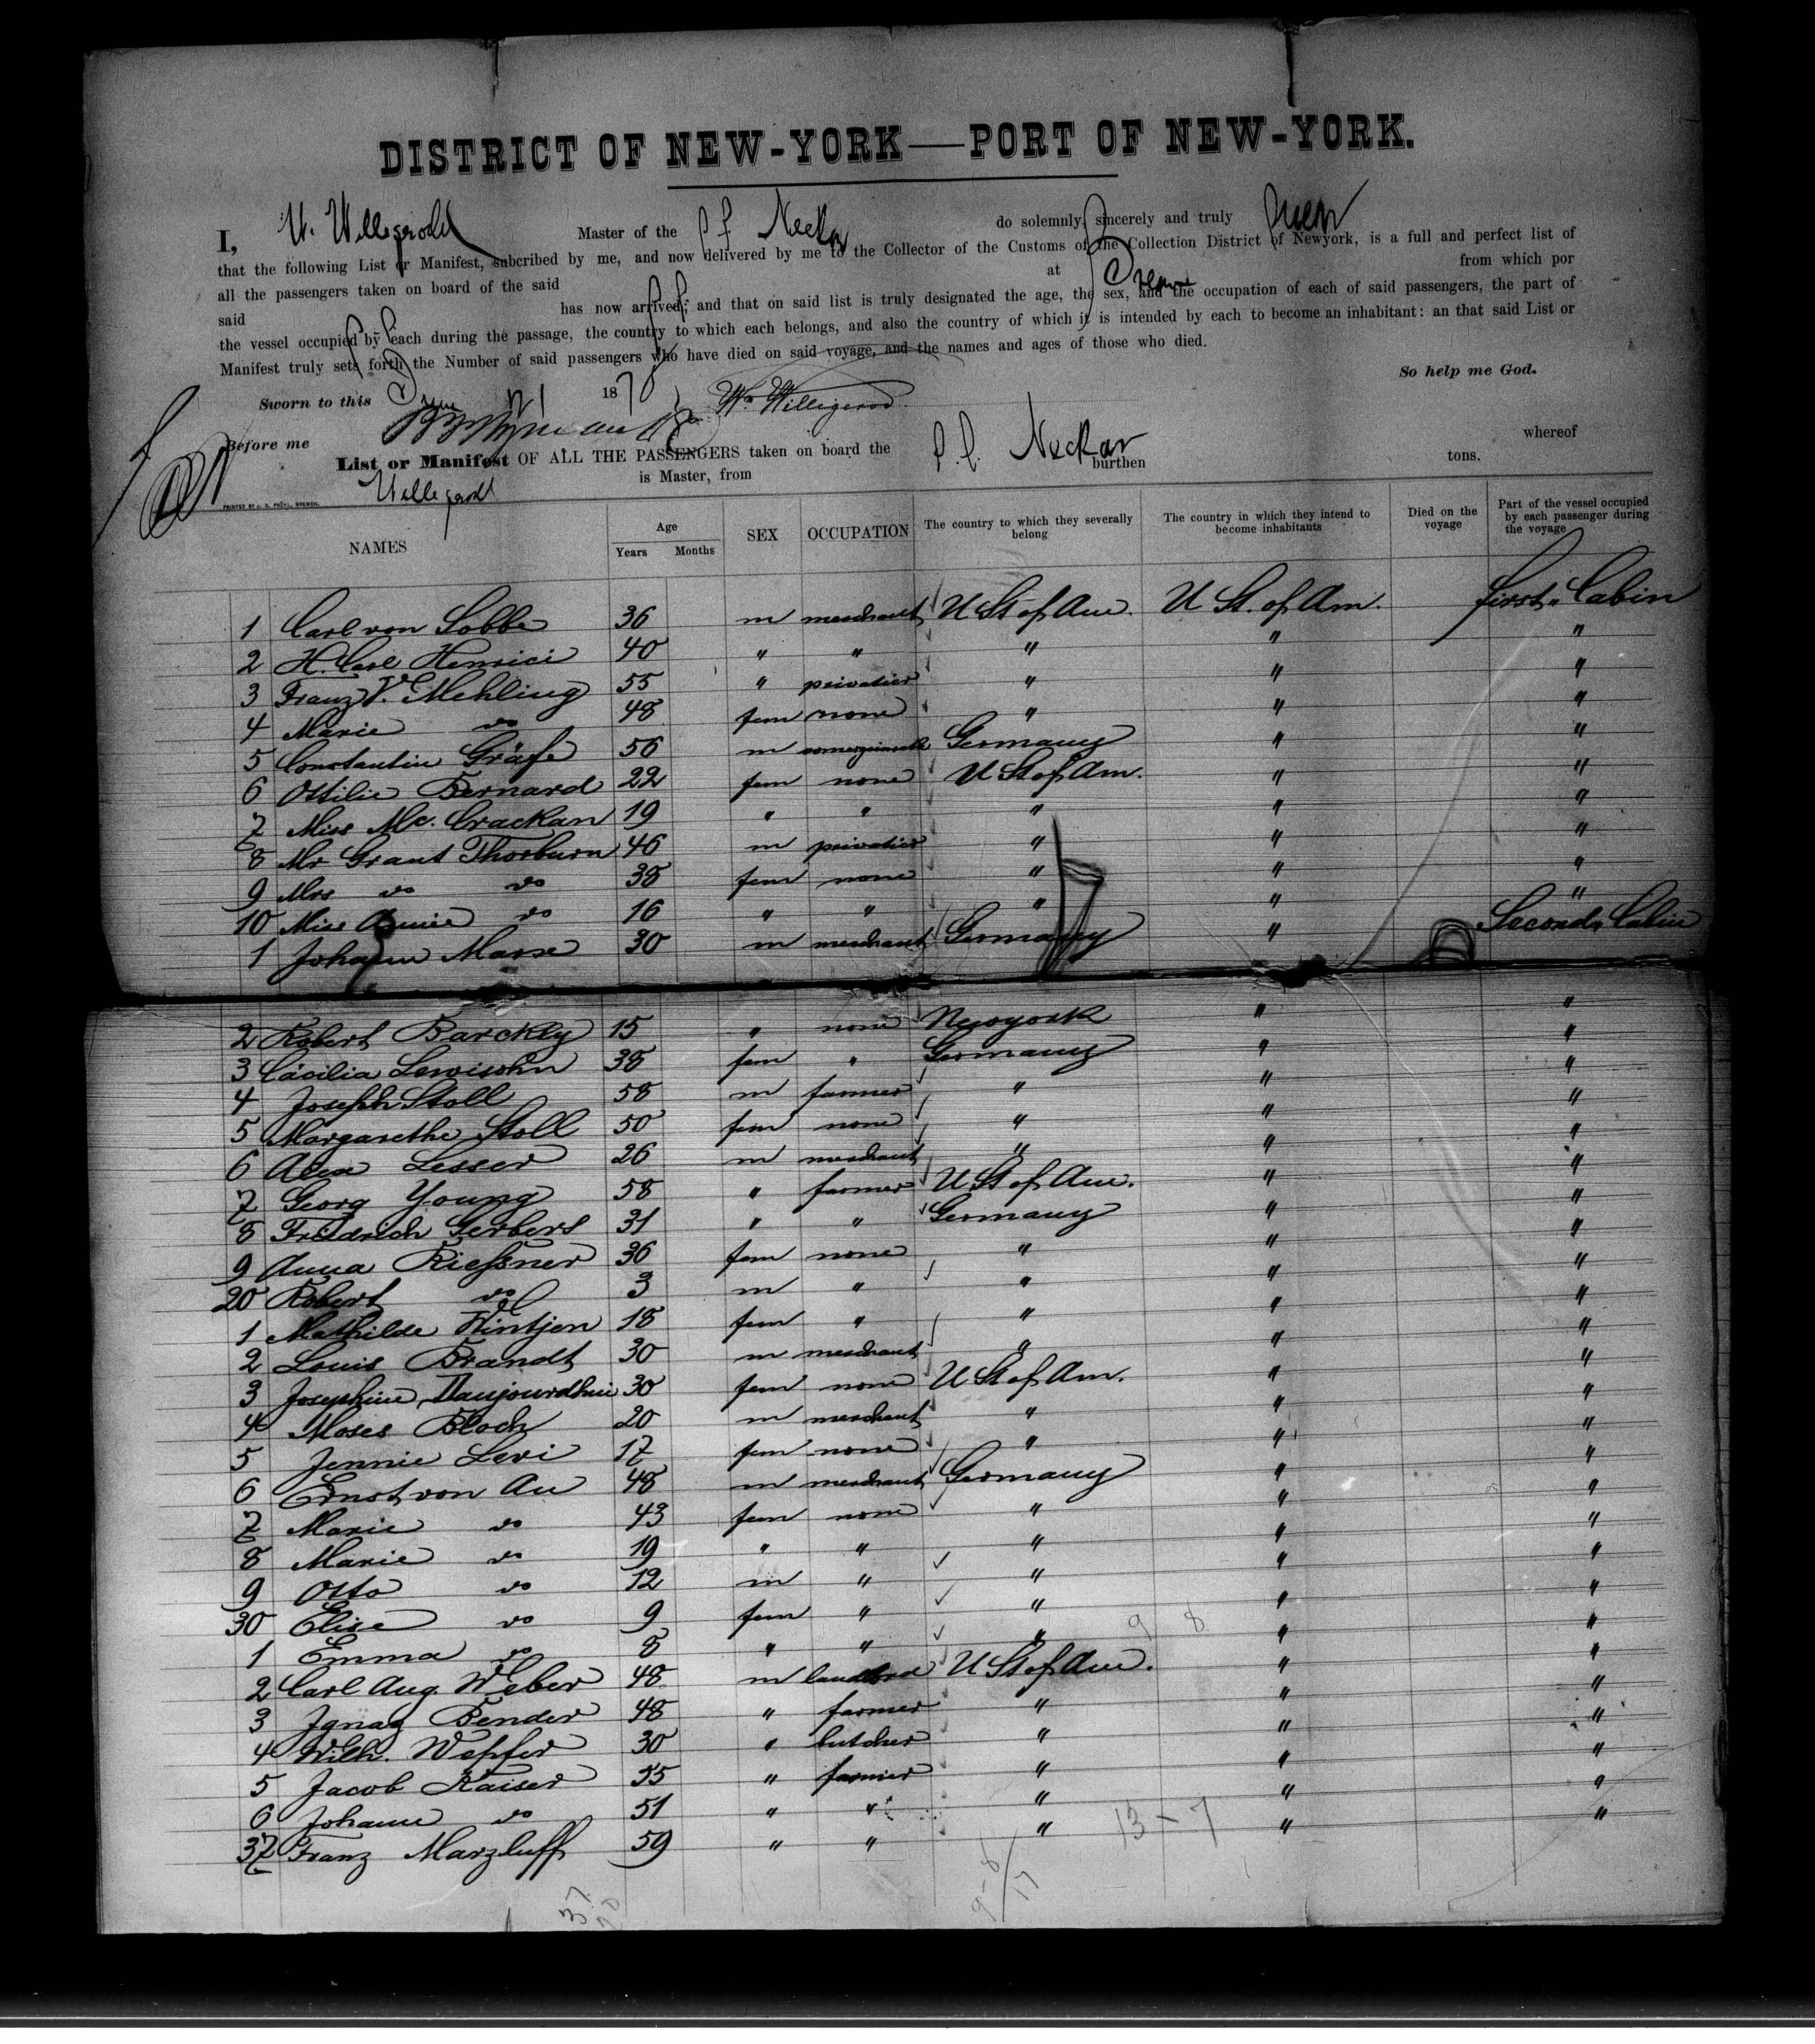 DISTRICT OF NEW-YORK—PORT OF NEW-YORK.
I, W. Willigerodt Master of the Neckar do solemnly, sincerely and truly
that the following List or Manifest, subcribed by me, and now delivered by me to the Collector of the Customs of the Collection District of Newyork, is a full and perfect list of
all the passengers taken on board of the said at Bremen from which por
said has now arrived; and that on said list is truly designated the age, the sex, and the occupation of each of said passengers, the part of
the vessel occupied by each during the passage, the country to which each belongs, and also the country of which it is intended by each to become an inhabitant: an that said List or
Manifest truly sets forth the Number of said passengers who have died on said voyage, and the names and ages of those who died.
So help me God.
Sworn to this 187 Wm Willigerod
Before me
List or Manifest OF ALL THE PASSENGERS taken on board the Neckar whereof
Willigerodt is Master, from burthen tons.
PRINTED BY J. D. PRÜHL, BREMEN.
NAMES Age Years Months SEX OCCUPATION The country to which they severally belong The country in which they intend to become inhabitants Died on the voyage Part of the vessel occupied by each passenger during the voyage
1 Carl von Lobbe 36 m merchant U St of Am. U St. of Am. first Cabin
2 H. Carl Henrici 40 " " " " "
3 Franz V. Mehling 55 " privatier " " "
4 Marie do 48 fem none " " "
5 Constantin Gräfe 56 m Germany " "
6 Ottilie Bernard 22 fem none U St of Am. " "
7 Miss Mc. Crackan 19 " " " " "
8 Mr Grant Thorburn 46 m privatier " " "
9 Mrs do do 38 fem none " " "
10 Miss Annie do 16 " " " " "
1 Johann Marse 30 m merchant Germany " Second Cabin
2 Robert Barckly 15 " none Newyork " "
3 Cäcilia Lewisohn 38 fem " Germany " "
4 Joseph Stoll 58 m farmer " " "
5 Margarethe Stoll 50 fem none " " "
6 Alex Lesser 26 m merchant " " "
7 Georg Young 58 " farmer U St of Am. " "
8 Friedrich Gerbers 31 " " Germany " "
9 Anna Rießner 36 fem none " " "
20 Robert do 3 m " " " "
1 Mathilde Wintjen 18 fem " " " "
2 Louis Brandt 30 m merchant " " "
3 Josephine Daujourdhui 30 fem none U St of Am. " "
4 Moses Bloch 20 m merchant " " "
5 Jennie Levi 17 fem none " " "
6 Ernst von Au 48 m merchant Germany " "
7 Marie do 43 fem none " " "
8 Marie do 19 " " " " "
9 Otto do 12 m " " " "
30 Elise do 9 fem " " " "
1 Emma do 8 " " " " "
2 Carl Aug. Weber 48 m landlord U St of Am. " "
3 Ignaz Bender 48 " farmer " " "
4 Wilh. Wepfer 30 " butcher " " "
5 Jacob Kaiser 55 " farmer " " "
6 Johann do 51 " " " " "
37 Franz Marzluff 59 " " " " "
9 8
13 - 7
37